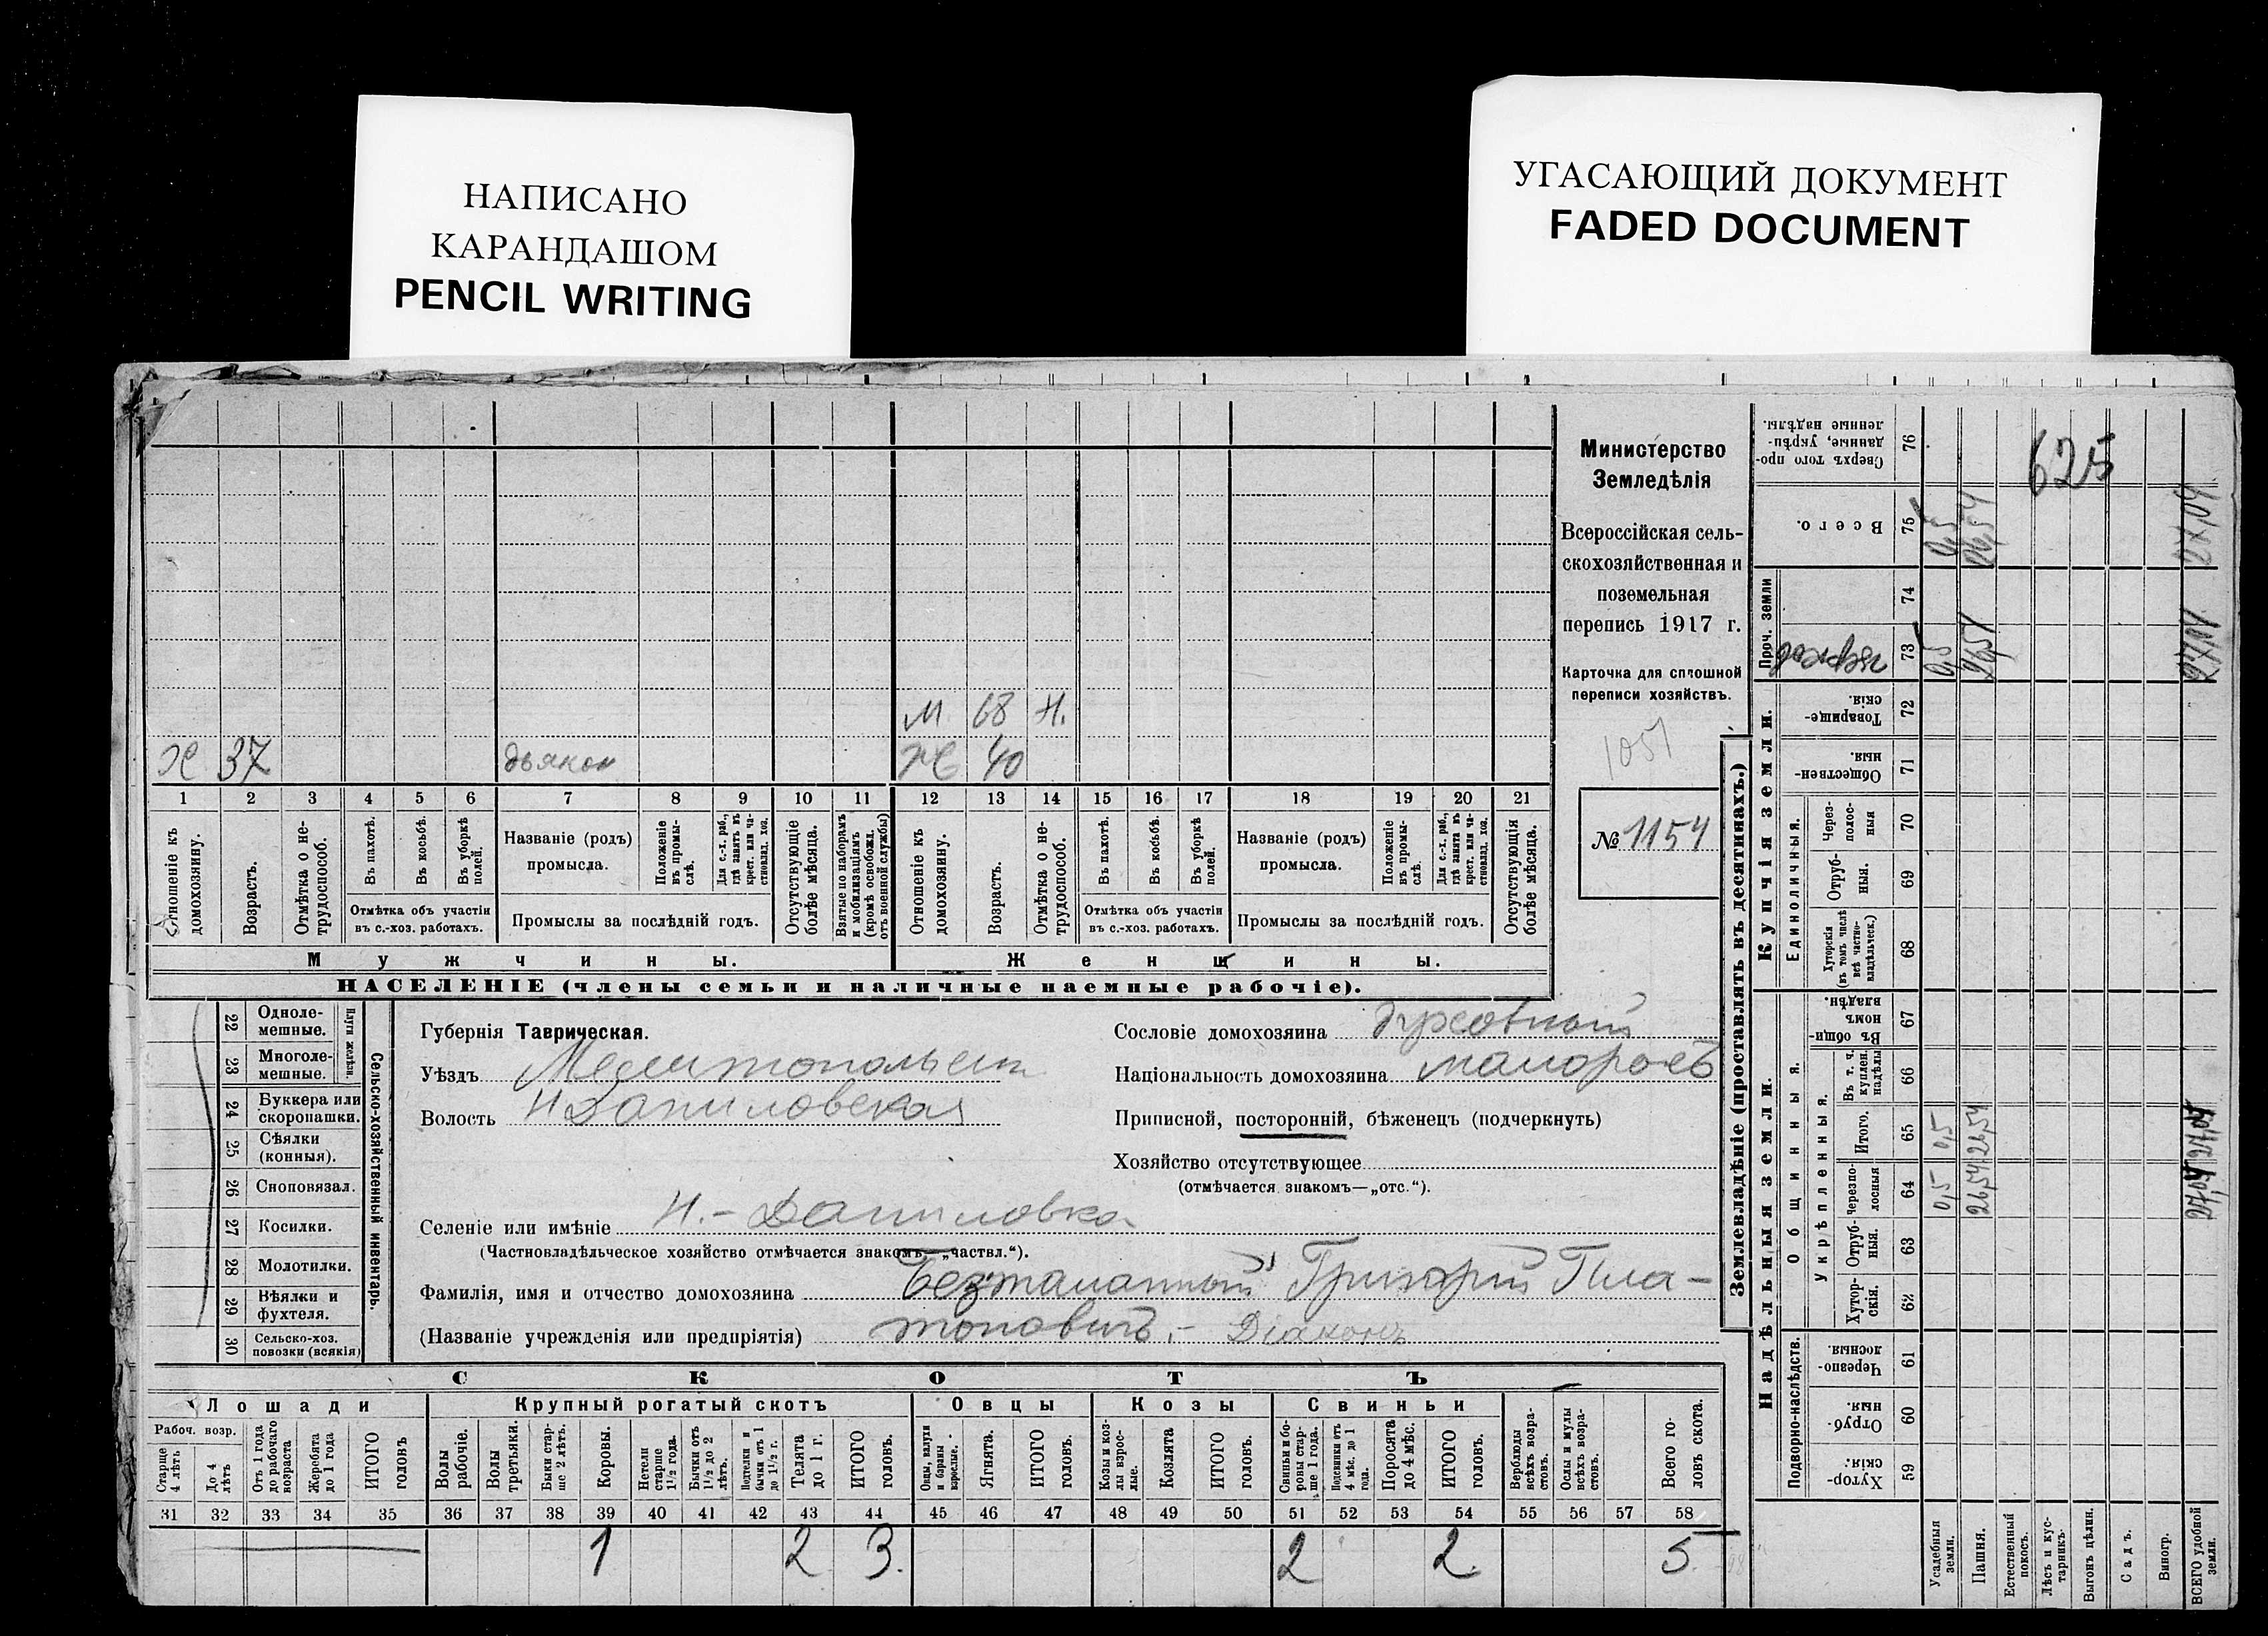 НАПИСАНО
КАРАНДАШОМ
PENCIL WRITING
УГАСАЮЩИЙ ДОКУМЕНТ
FADED DOCUMENT
М 68 Н.
Х 37 дьякон Ж 40
1 2 3 4 5 6 7 8 9 10 11 12 13 14 15 16 17 18 19 20 21
Отношеніе къ домохозяину.
Возрастъ.
Отмѣтка о не-
трудоспособ.
Въ пахотѣ.
Въ косьбѣ.
Въ уборкѣ
полей.
Отмѣтка объ участіи
въ с.-хоз. работахъ.
Названіе (родъ)
промысла.
Положеніе
въ промы-
слѣ.
Для с.-х. раб.,
гдѣ занятъ въ
крест. или ча-
стновлад. хоз.
Промыслы за послѣдній годъ.
Отсутствующіе
болѣе мѣсяца.
Взятые по наборамъ
и мобилизаціямъ
(кромѣ освобожд.
отъ военной службы)
Отношеніе къ
домохозяину.
Возрастъ.
Отмѣтка о не-
трудоспособ.
Въ пахотѣ.
Въ косьбѣ.
Въ уборкѣ
полей.
Отмѣтка объ участіи
въ с.-хоз. работахъ.
Названіе (родъ)
промысла.
Положеніе
въ промы-
слѣ.
Для с.-х. раб.,
гдѣ занята въ
крест. или ча-
стновлад. хоз.
Промыслы за послѣдній годъ.
Отсутствующія
болѣе мѣсяца.
Мужчины.
Женщины.
НАСЕЛЕНІЕ (члены семьи и наличные наемные рабочіе).
Министерство
Земледѣлія
Всероссійская сель-
скохозяйственная и
поземельная
перепись 1917 г.
Карточка для сплошной
переписи хозяйствъ.
1051
№ 1154
22 Одноле-
мешные.
23 Многоле-
мешные.
Плуги желѣзн.
24 Буккера или
скоропашки.
25 Сѣялки
(конныя).
26 Сноповязал.
27 Косилки.
28 Молотилки.
29 Вѣялки и
фухтеля.
30 Сельско-хоз.
повозки (всякія)
Сельско-хозяйственный инвентарь.
Губернія Таврическая.
Уѣздъ Мелитопольск
Волость Н Даниловская
Сословіе домохозяина духовный
Національность домохозяина малоросъ
Приписной, посторонній, бѣженецъ (подчеркнуть)
Хозяйство отсутствующее
(отмѣчается знакомъ—„отс.“).
Селеніе или имѣніе Н.-Даниловка
(Частновладѣльческое хозяйство отмѣчается знакомъ—„частвл.“).
Фамилія, имя и отчество домохозяина Безталанный Григорій Пла-
(Названіе учрежденія или предпріятія) тоновичъ.- Діаконъ
СКОТЪ
Лошади
Крупный рогатый скотъ
Овцы
Козы
Свиньи
Рабоч. возр.
Старше
4 лѣтъ
До 4
лѣтъ
Отъ 1 года
до рабочаго
возраста
Жеребята
до 1 года
ИТОГО
головъ
Волы
рабочіе.
Волы
третьяки.
Быки стар-
ше 2 лѣтъ.
Коровы.
Нетели
старше
1½ года.
Бычки отъ
1½ до 2
лѣтъ.
Подтелки и
бычки отъ 1
до 1½ г.
Телята
до 1 г.
ИТОГО
головъ.
Овцы, валухи
и бараны
взрослые.
Ягнята.
ИТОГО
головъ.
Козы и коз-
лы взрос-
лые.
Козлята
ИТОГО
головъ.
Свиньи и бо-
ровы стар-
ше 1 года.
Подсвинки отъ
4 мѣс. до 1
года.
Поросята
до 4 мѣс.
ИТОГО
головъ.
Верблюды
всѣхъ возра-
стовъ.
Ослы и мулы
всѣхъ возра-
стовъ.
Всего го-
ловъ скота.
31 32 33 34 35 36 37 38 39 40 41 42 43 44 45 46 47 48 49 50 51 52 53 54 55 56 57 58
1 2 3. 2 2. 5
Землевладѣніе (проставлять въ десятинахъ.)
625
Сверхъ того про-
данные, укрѣп-
ленные надѣлы.
76
Всего.
75 0,5 26,54 27,04
Проч. земли
74
73 0,5 27,04
Купчія земли.
Товарище-
скія.
72
Обществен-
ныя.
71
Единоличныя.
Через-
полос-
ныя
70
Отруб-
ныя.
69
Хуторскія
(въ томъ числѣ
всѣ частно-
владѣльческ.)
68
Надѣльныя земли.
Общинныя.
Въ общи
номъ
владѣн.
67
Укрѣпленныя.
Въ т. ч.
куплен.
надѣлы
66
Итого.
65 0,5 26,54 27,04
Черезпо-
лосныя
64 0,5 26,54 27,04
Отруб-
ныя.
63
Хутор-
скія.
62
Подворно-наслѣдств.
Черезпо-
лосныя.
61
Отруб-
ныя.
60
Хутор-
скія.
59
Усадебныя
земли.
Пашня.
Естественный
покосъ.
Лѣсъ и кус-
тарникъ.
Выгонъ цѣлин.
Садъ.
Виногр.
ВСЕГО удобной
земли.